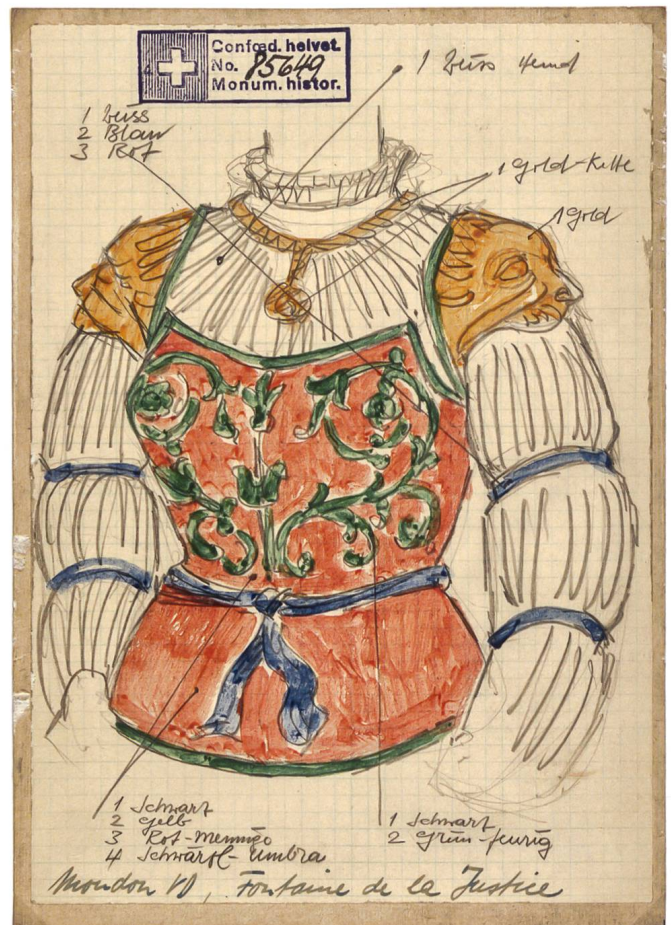 Confœd. helvet.
No. 85649
Monum. histor.
1 weiss Hemd
1 weiss
2 Blau
3 Rot
1 Gold-Kette
1 Gold
1 Schwarz
2 gelb
3 Rot-Mennige
4 Schwärzl-Umbra
1 Schwarz
2 Grün-feurig
Moudon VD, Fontaine de la Justice